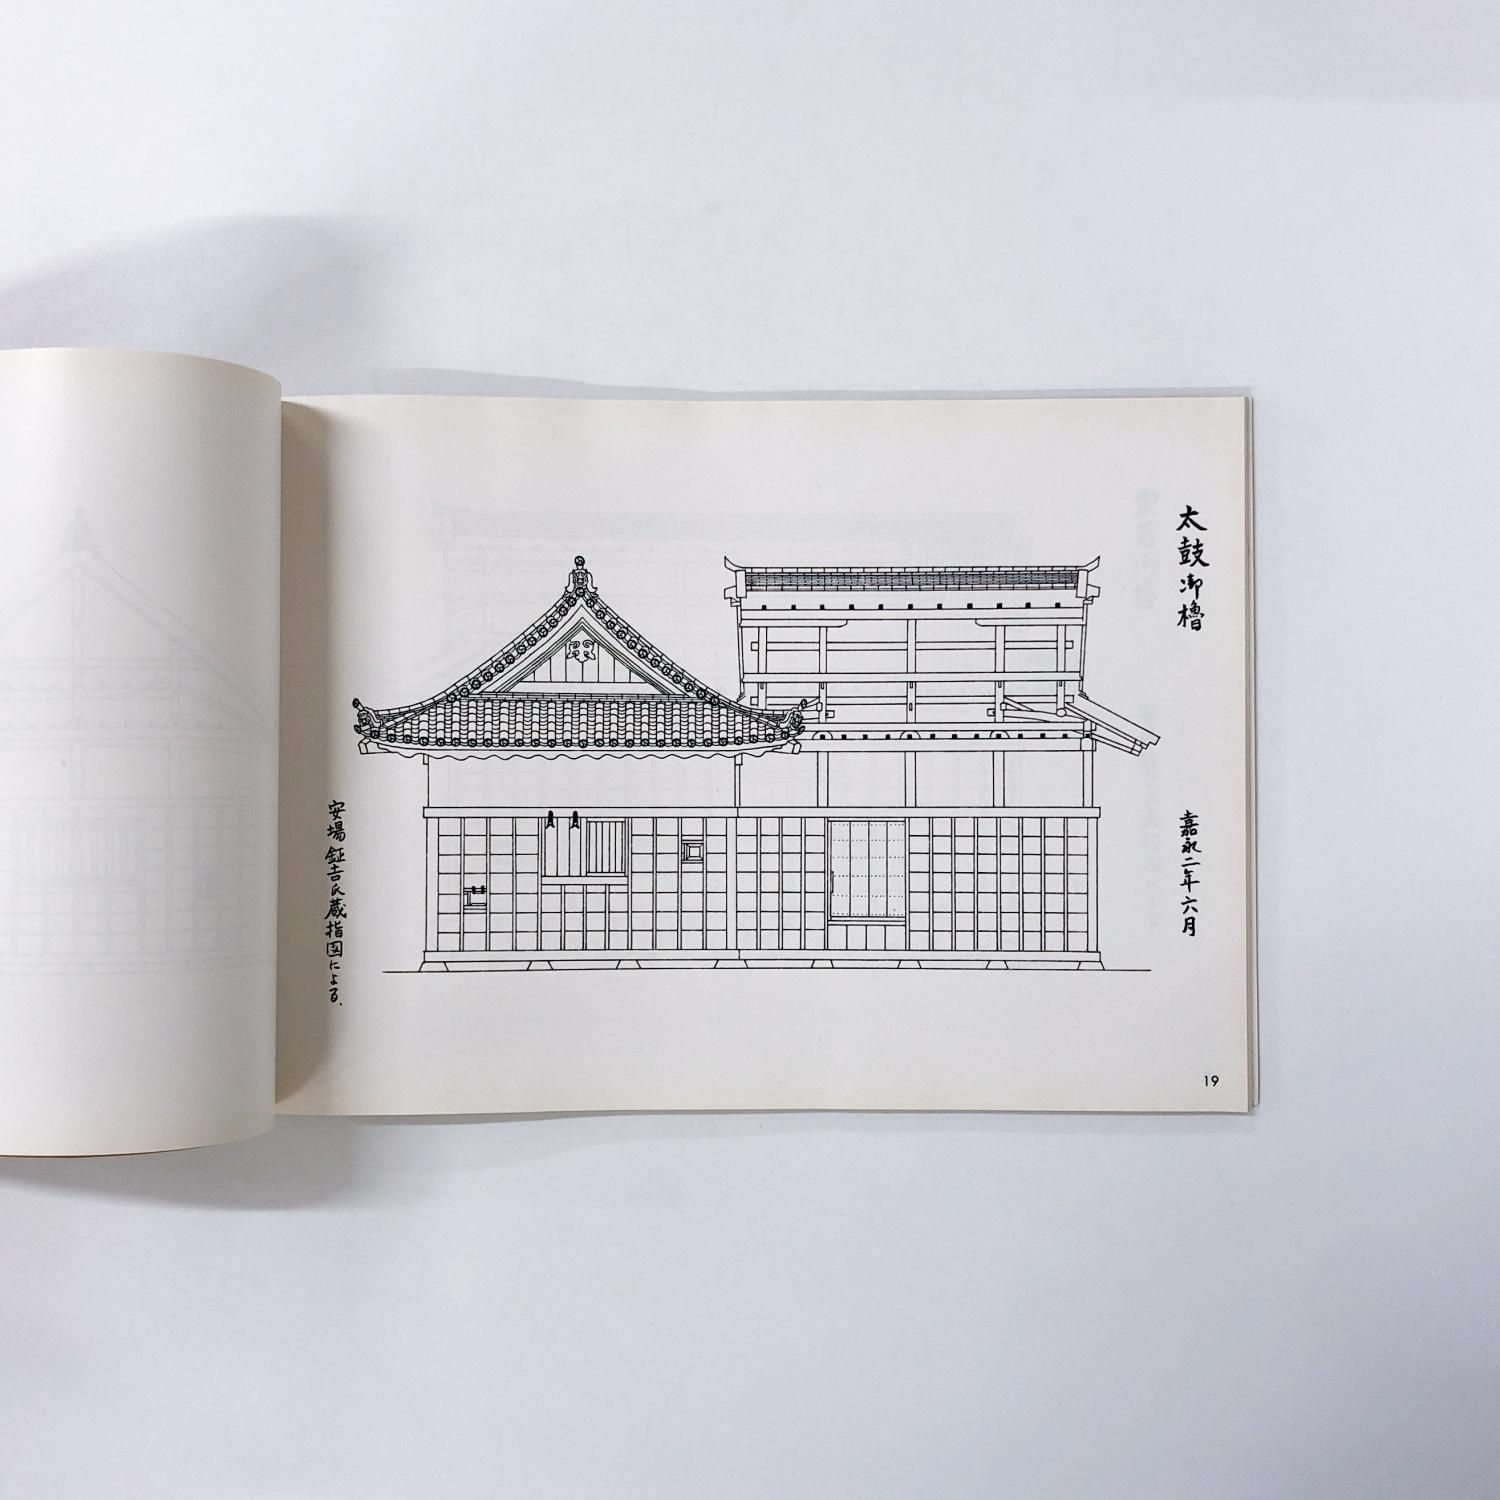 太鼓御櫓
嘉永二年六月
安場鉦吉氏蔵指図による、
19